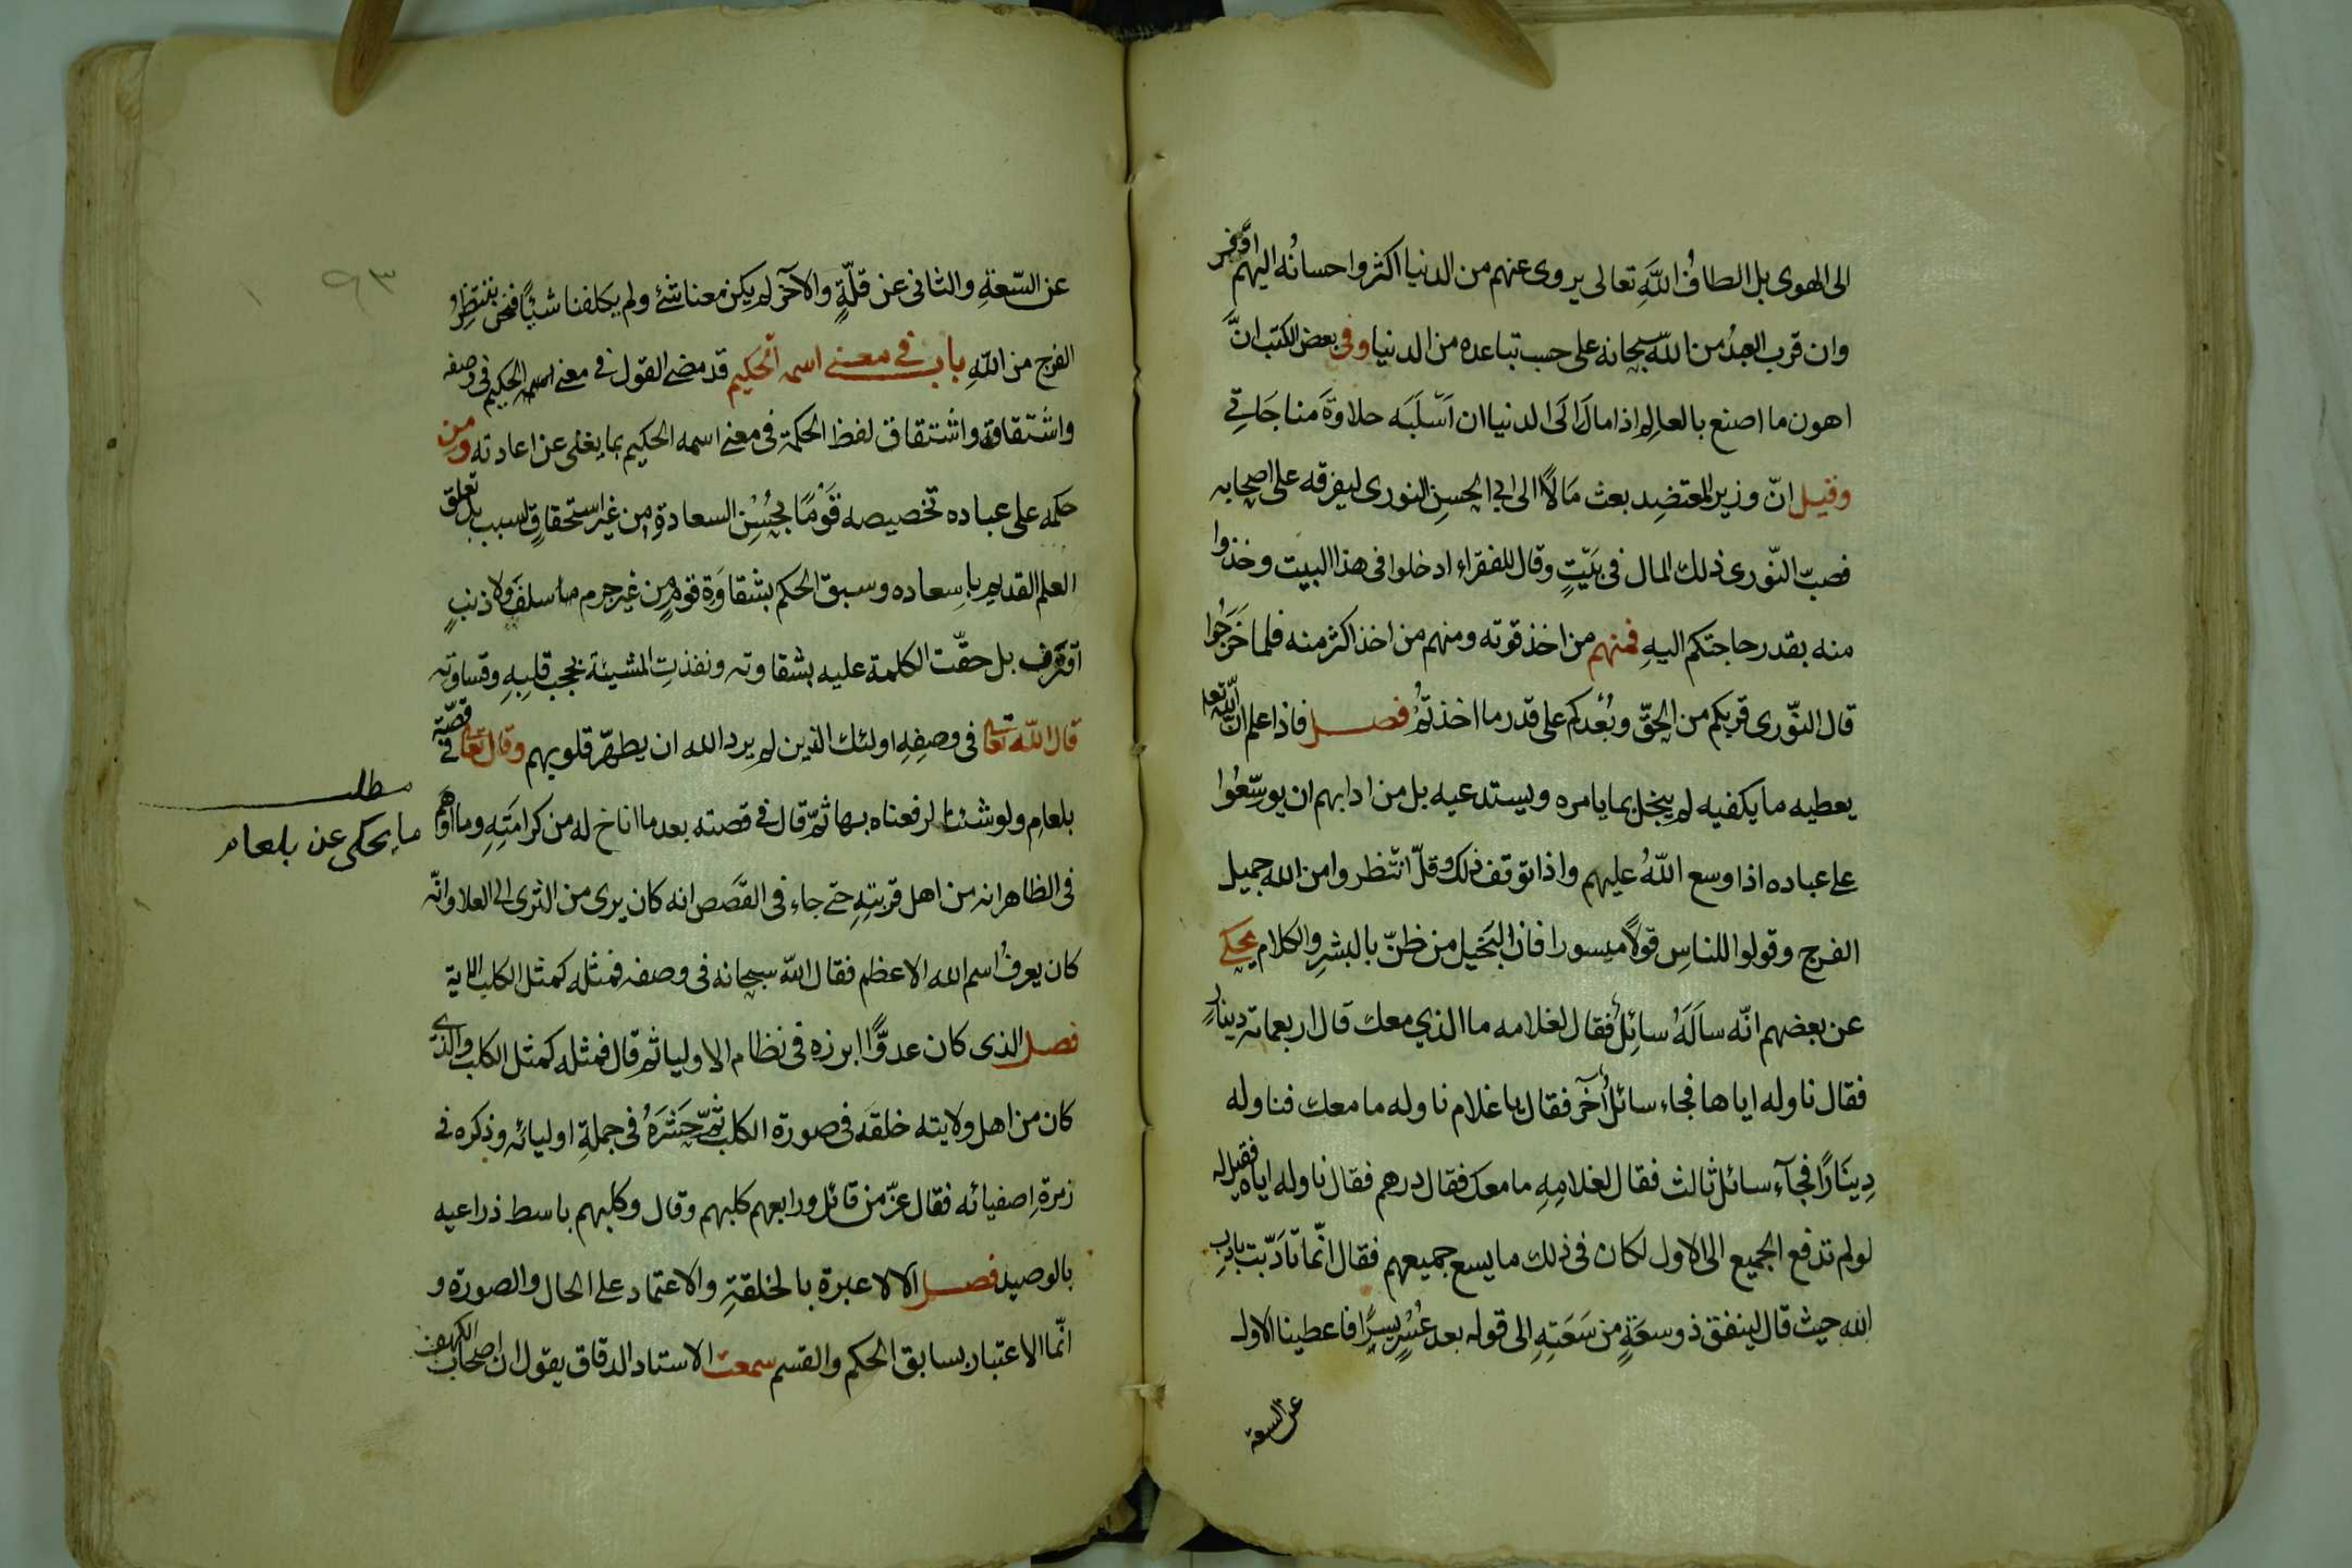 الى الهوى بل الطافُ اللَّهِ تعالى يروى عنهم من الدنيا اكثر واحسانُه اليهم اوَفر
وان قرب العبدُ من اللّه سبحانه على حسب تباعده من الدنيا وفى بعض الكتب انَّ
اهون ما اصنع بالعالِم اذا مالَ الَى الدنيا ان اَسْلَبَه حلاوَةَ مناجَاتِي
وقيل انّ وزير المعتضِد بعث مَالًا الى ابى الحسِن النورى ليفرقه على اصحابه
فصبّ النّورى ذلك المال فى بَيْتٍ وقال للفقراء ادخلوا فى هذا البيت وخذوا
منه بقدر حاجتكم اليهِ فمنهم من اخذ قوته ومنهم من اخذ اكثر منه فلما خَرَجُوا
قال النّورى قربكم من الحقّ وبُعْدكم على قدر ما اخذتُمْ فصل فاذا علم انّ اللّه تعا
يعطيه ما يكفيه لم يبخل بما يامره ويستدعيه بل من ادابهم ان يوسّعُوا
على عباده اذا وسع اللّهُ عليهم واذا توقف ذلك وقلّ انتظروا من الله جميل
الفرج وقولوا للناسِ قولًا ميسورا فان البَخيل من ظنّ بالبشرِ والكلام يحكى
عن بعضهم انّه سالَهُ سائِلٌ فقال لغلامه ما الذي معك قال اربعماته دينارٍ
فقال ناوله اياها فجاء سائلٌ اُخَر فقال يا غلام ناوله ما معك فناوله
دِينَارًا فجآء سائل ثالث فقال لغلامِهِ ما معك فقال درهم فقال ناوله اياه فقيل له
لو لم تدفع الجميع الى الاول لكان فى ذلك ما يسع جميعهم فقال انّما تاَدّبت بادبِ
الله حيث قال لينفق ذو سعَةٍ من سَعَتِهِ الى قوله بعد عُسْرٍ يسرًا فاعطينا الاول
عن السعة
عن السّعَةِ والثانى عن قلّةٍ والآخر لم يكن معنا شئ ولم يكلفنا شئًا فنحن ننتظِرُ
الفرج من اللّهِ باب في معنى اسمه الحكيم قد مضى القول فى معنى اسمه الحكيم فى وصفه
واشتقاقه واشتقاق لفظ الحكمة فى معنى اسمه الحكيم بما يغنى عن اعادته ومن
حكمه على عباده تخصيصه قَوْمًا بحُسْنِ السعادةِ من غير استحقاقٍ لسبب بل تعلق
العلم القديم باِسعاده وسبق الحكم بشقاوَة قومٍ من غير جرم ما سلفَ ولا ذنبٍ
اقترف بل حقّت الكلمة عليه بشقاوته ونفذتِ المشيئة بحجب قلبِهِ وقساوته
قال اللّه تعالى فى وصفِهِ اولئك الذين لم يرد الله ان يطهّر قلوبهم وقال تعالى فى قصّة
بلعام ولو شئنا لرفعناه بها ثمّ قال فى قصته بعد ما اناخ له من كرامَتِهِ وما اوهم
فى الظاهر انه من اهل قربتهِ حتى جاء فى القَصَص انه كان يرى من الثرى الى العلا وانّه
كان يعرفُ اسم الله الاعظم فقال اللّه سبحانه فى وصفه فمثله كمثل الكلب الاية
فصل الذى كان عدوًّا ابرزه فى نظام الاوليا ثم قال فمثله كمثل الكلب والذى
كان من اهل ولايته خلقَه فى صورة الكلب ثمّ حَشَرَهُ فى جملةِ اوليائه وذكره فى
زمرةِ اصفيائه فقال عزّ من قائل ورابعهم كلبهم وقال وكلبهم باسط ذراعيه
بالوصيد فصل الا لا عبرة بالخلقةِ والاعتماد على الحال والصورة و
انّما الاعتبار بسابق الحكم والقسم سمعت الاستاد الدقاق يقول ان اصحاب الكهف
مطلب
ما يحكى عن بلعام
٩٣